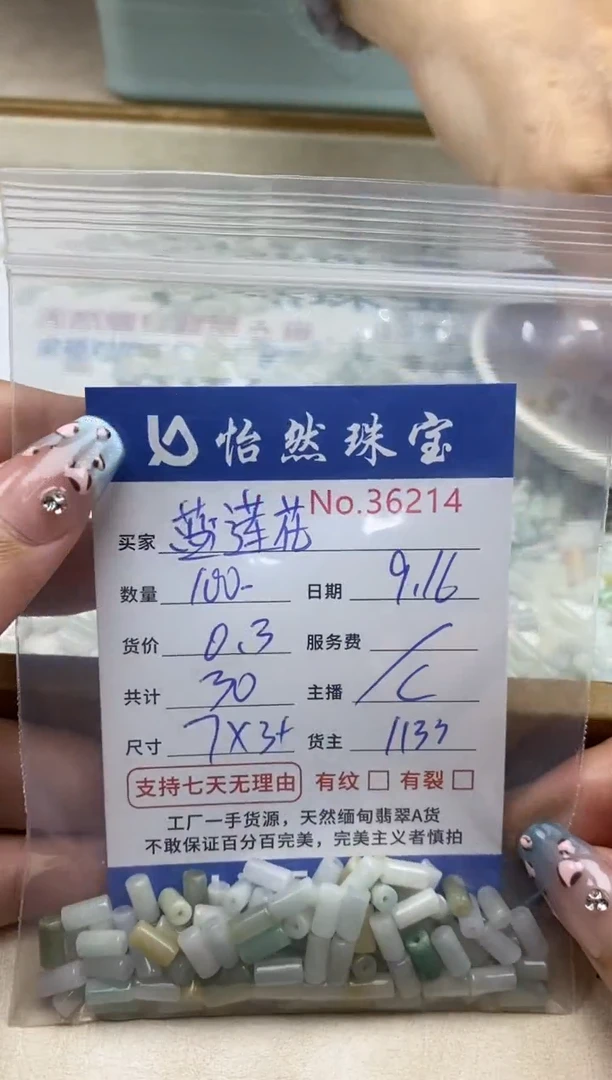 怡然珠宝
No.36214
买家 蓝莲花
数量 100- 日期 9.16
货价 0.3 服务费 /
共计 30 主播 C
尺寸 7X3+ 货主 1133
支持七天无理由 有纹 □ 有裂 □
工厂一手货源，天然缅甸翡翠A货
不敢保证百分百完美，完美主义者慎拍